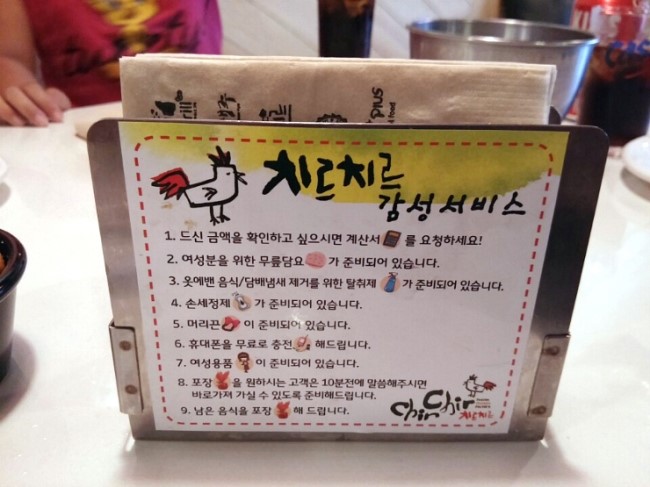 Plus
food
치르치르
감성서비스
1. 드신 금액을 확인하고 싶으시면 계산서 를 요청하세요!
2. 여성분을 위한 무릎담요 가 준비되어 있습니다.
3. 옷에밴 음식/담배냄새 제거를 위한 탈취제 가 준비되어 있습니다.
4. 손세정제 가 준비되어 있습니다.
5. 머리끈 이 준비되어 있습니다.
6. 휴대폰을 무료로 충전 해드립니다.
7. 여성용품 이 준비되어 있습니다.
8. 포장 을 원하시는 고객은 10분전에 말씀해주시면
바로가져 가실 수 있도록 준비해드립니다.
9. 남은 음식을 포장 해 드립니다.
Chir Chir
치르치르